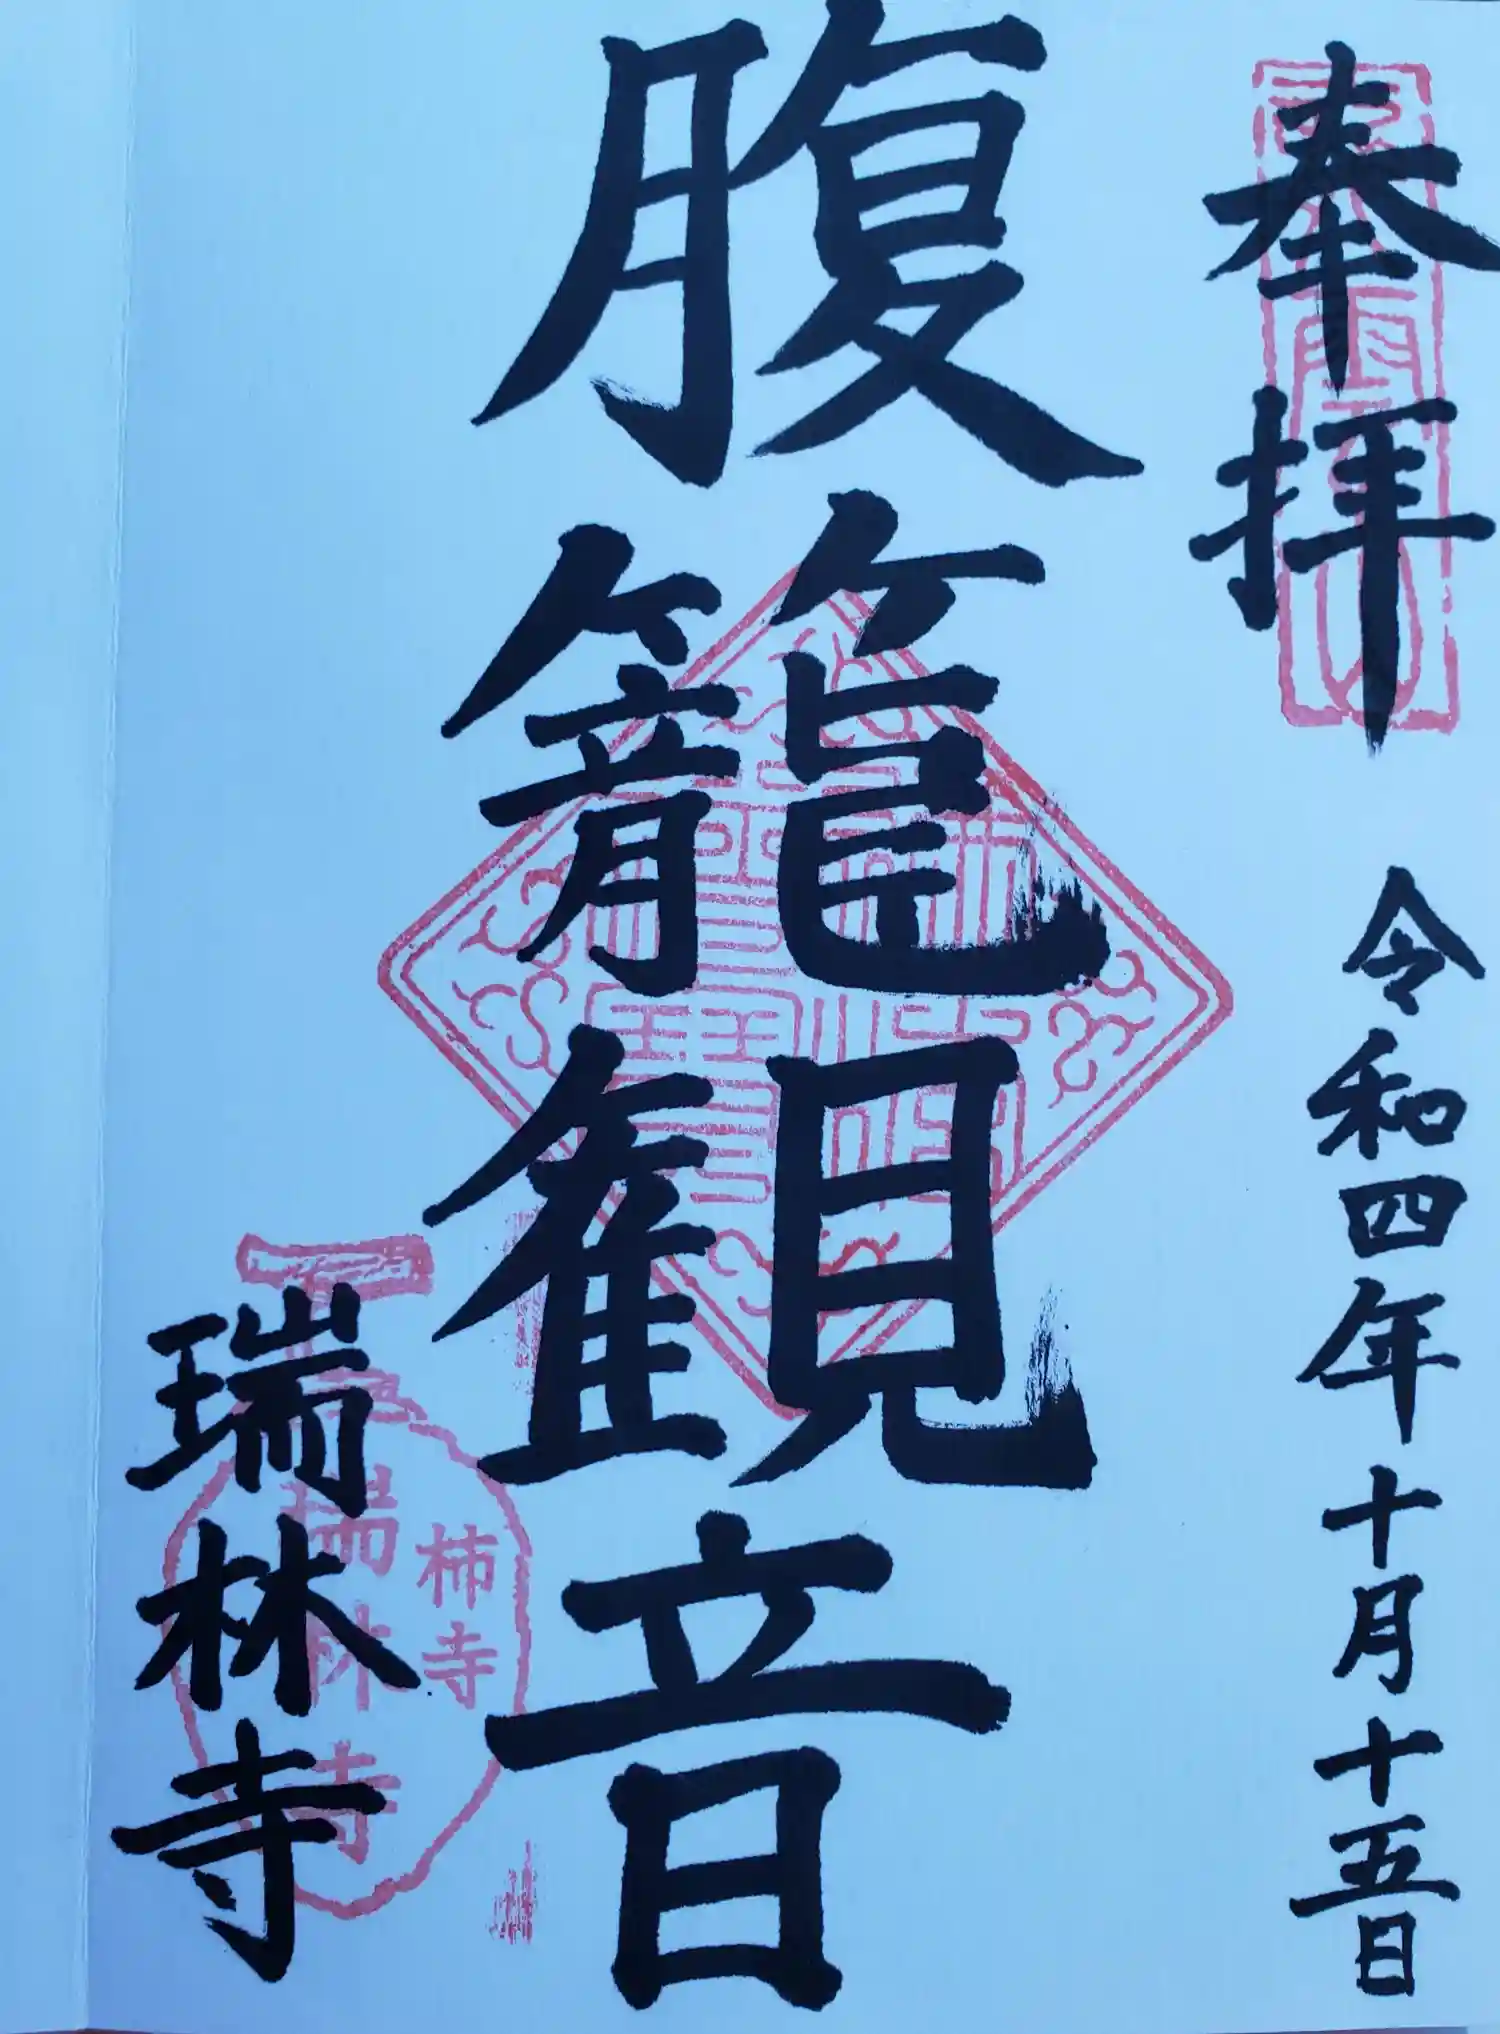 奉拝
令和四年十月十五日
腹籠観音
瑞林寺
柿寺
瑞林寺